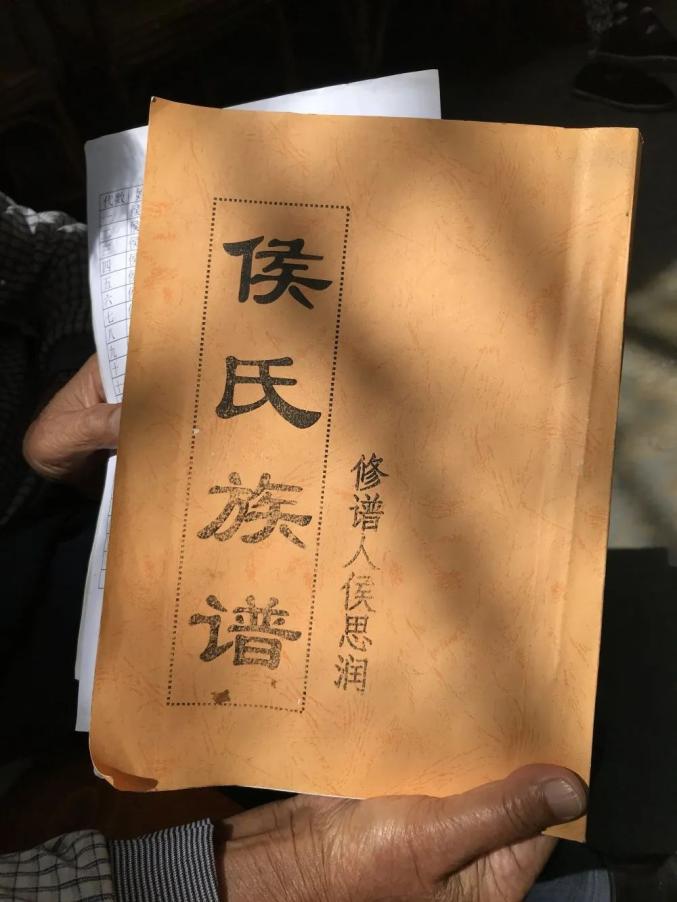 侯氏族谱
修谱人侯思润
代数
四
五
六
七
八
九
十